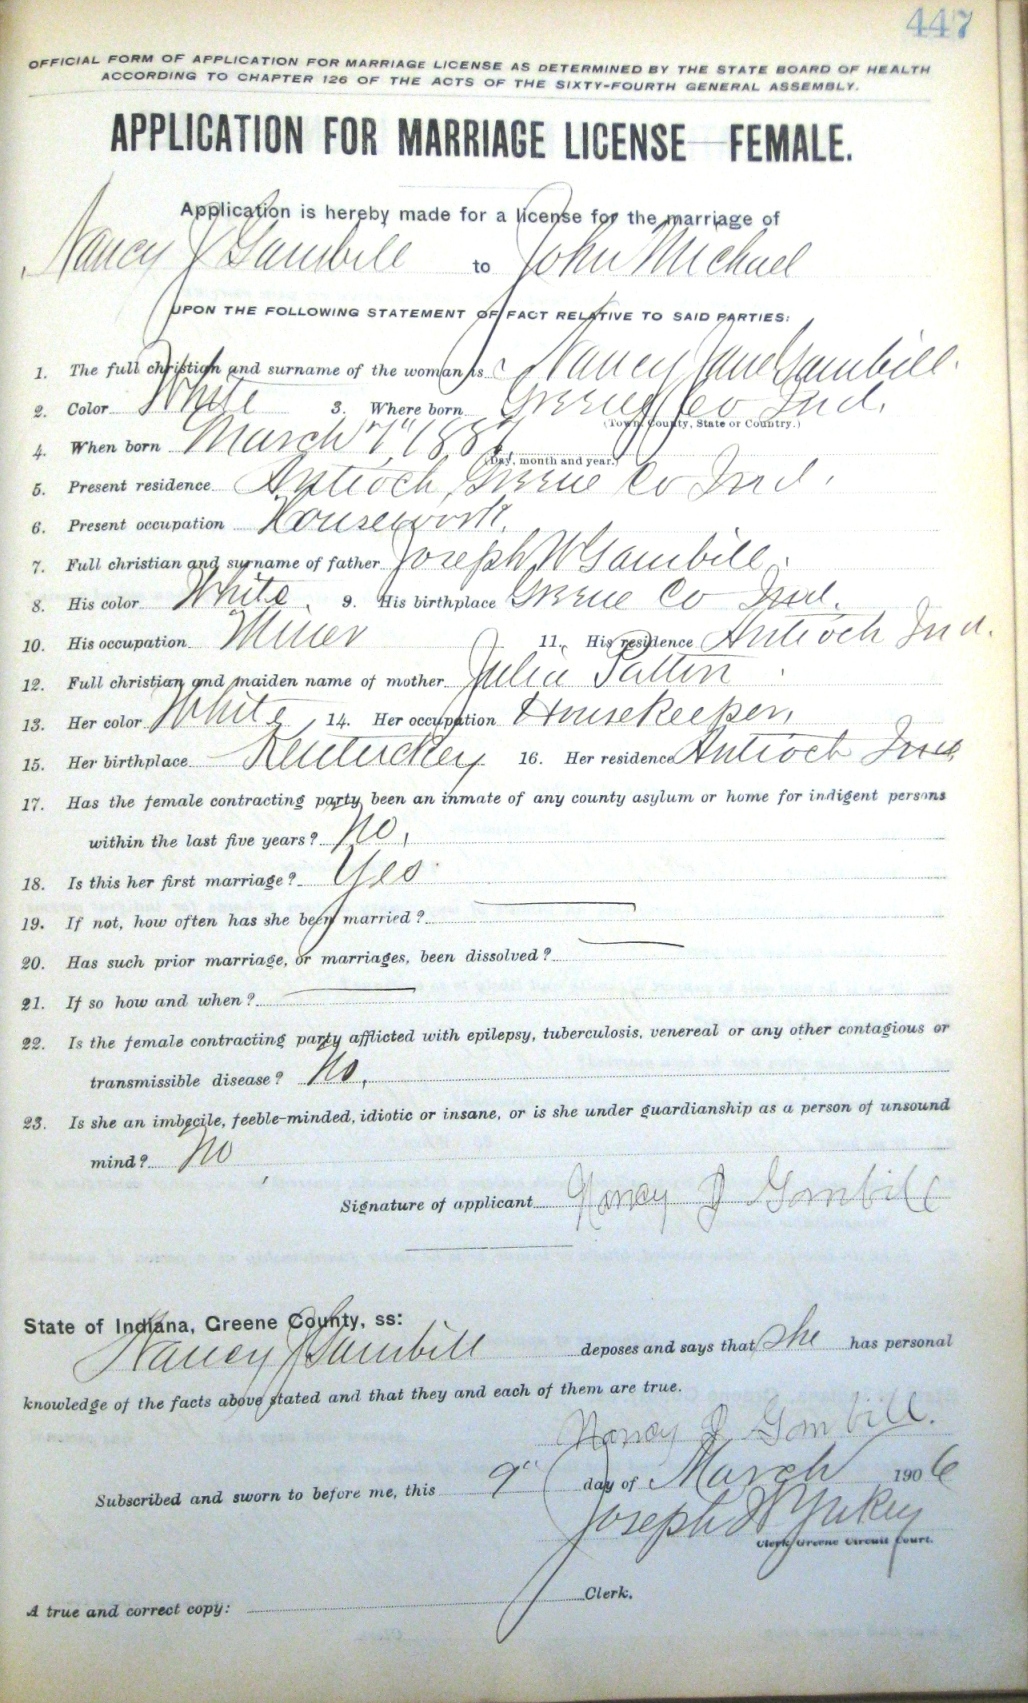 447
OFFICIAL FORM OF APPLICATION FOR MARRIAGE LICENSE AS DETERMINED BY THE STATE BOARD OF HEALTH
ACCORDING TO CHAPTER 126 OF THE ACTS OF THE SIXTY-FOURTH GENERAL ASSEMBLY.
APPLICATION FOR MARRIAGE LICENSE—FEMALE.
Application is hereby made for a license for the marriage of
Nancy J Gambill to John Michael
UPON THE FOLLOWING STATEMENT OF FACT RELATIVE TO SAID PARTIES:
1. The full christian and surname of the woman is Nancy Jane Gambill.
2. Color White 3. Where born Greene Co Ind.
(Town, County, State or Country.)
4. When born March "7" 1887
(Day, month and year.)
5. Present residence Antioch, Greene Co Ind.
6. Present occupation Housework.
7. Full christian and surname of father Joseph W Gambill.
8. His color White. 9. His birthplace Greene Co Ind.
10. His occupation Miner 11. His residence Antioch Ind.
12. Full christian and maiden name of mother Julia Patton
13. Her color White 14. Her occupation Housekeeper,
15. Her birthplace Kentuckey 16. Her residence Antioch Ind
17. Has the female contracting party been an inmate of any county asylum or home for indigent persons
within the last five years? No,
18. Is this her first marriage? Yes
19. If not, how often has she been married?
20. Has such prior marriage, or marriages, been dissolved?
21. If so how and when?
22. Is the female contracting party afflicted with epilepsy, tuberculosis, venereal or any other contagious or
transmissible disease? No,
23. Is she an imbecile, feeble-minded, idiotic or insane, or is she under guardianship as a person of unsound
mind? No
Signature of applicant Nancy J Gombill
State of Indiana, Greene County, ss:
Nancy J Gambill deposes and says that she has personal
knowledge of the facts above stated and that they and each of them are true.
Nancy J Gombill.
Subscribed and sworn to before me, this 9" day of March 1906
Joseph W Yakey
Clerk Greene Circuit Court.
A true and correct copy: Clerk.